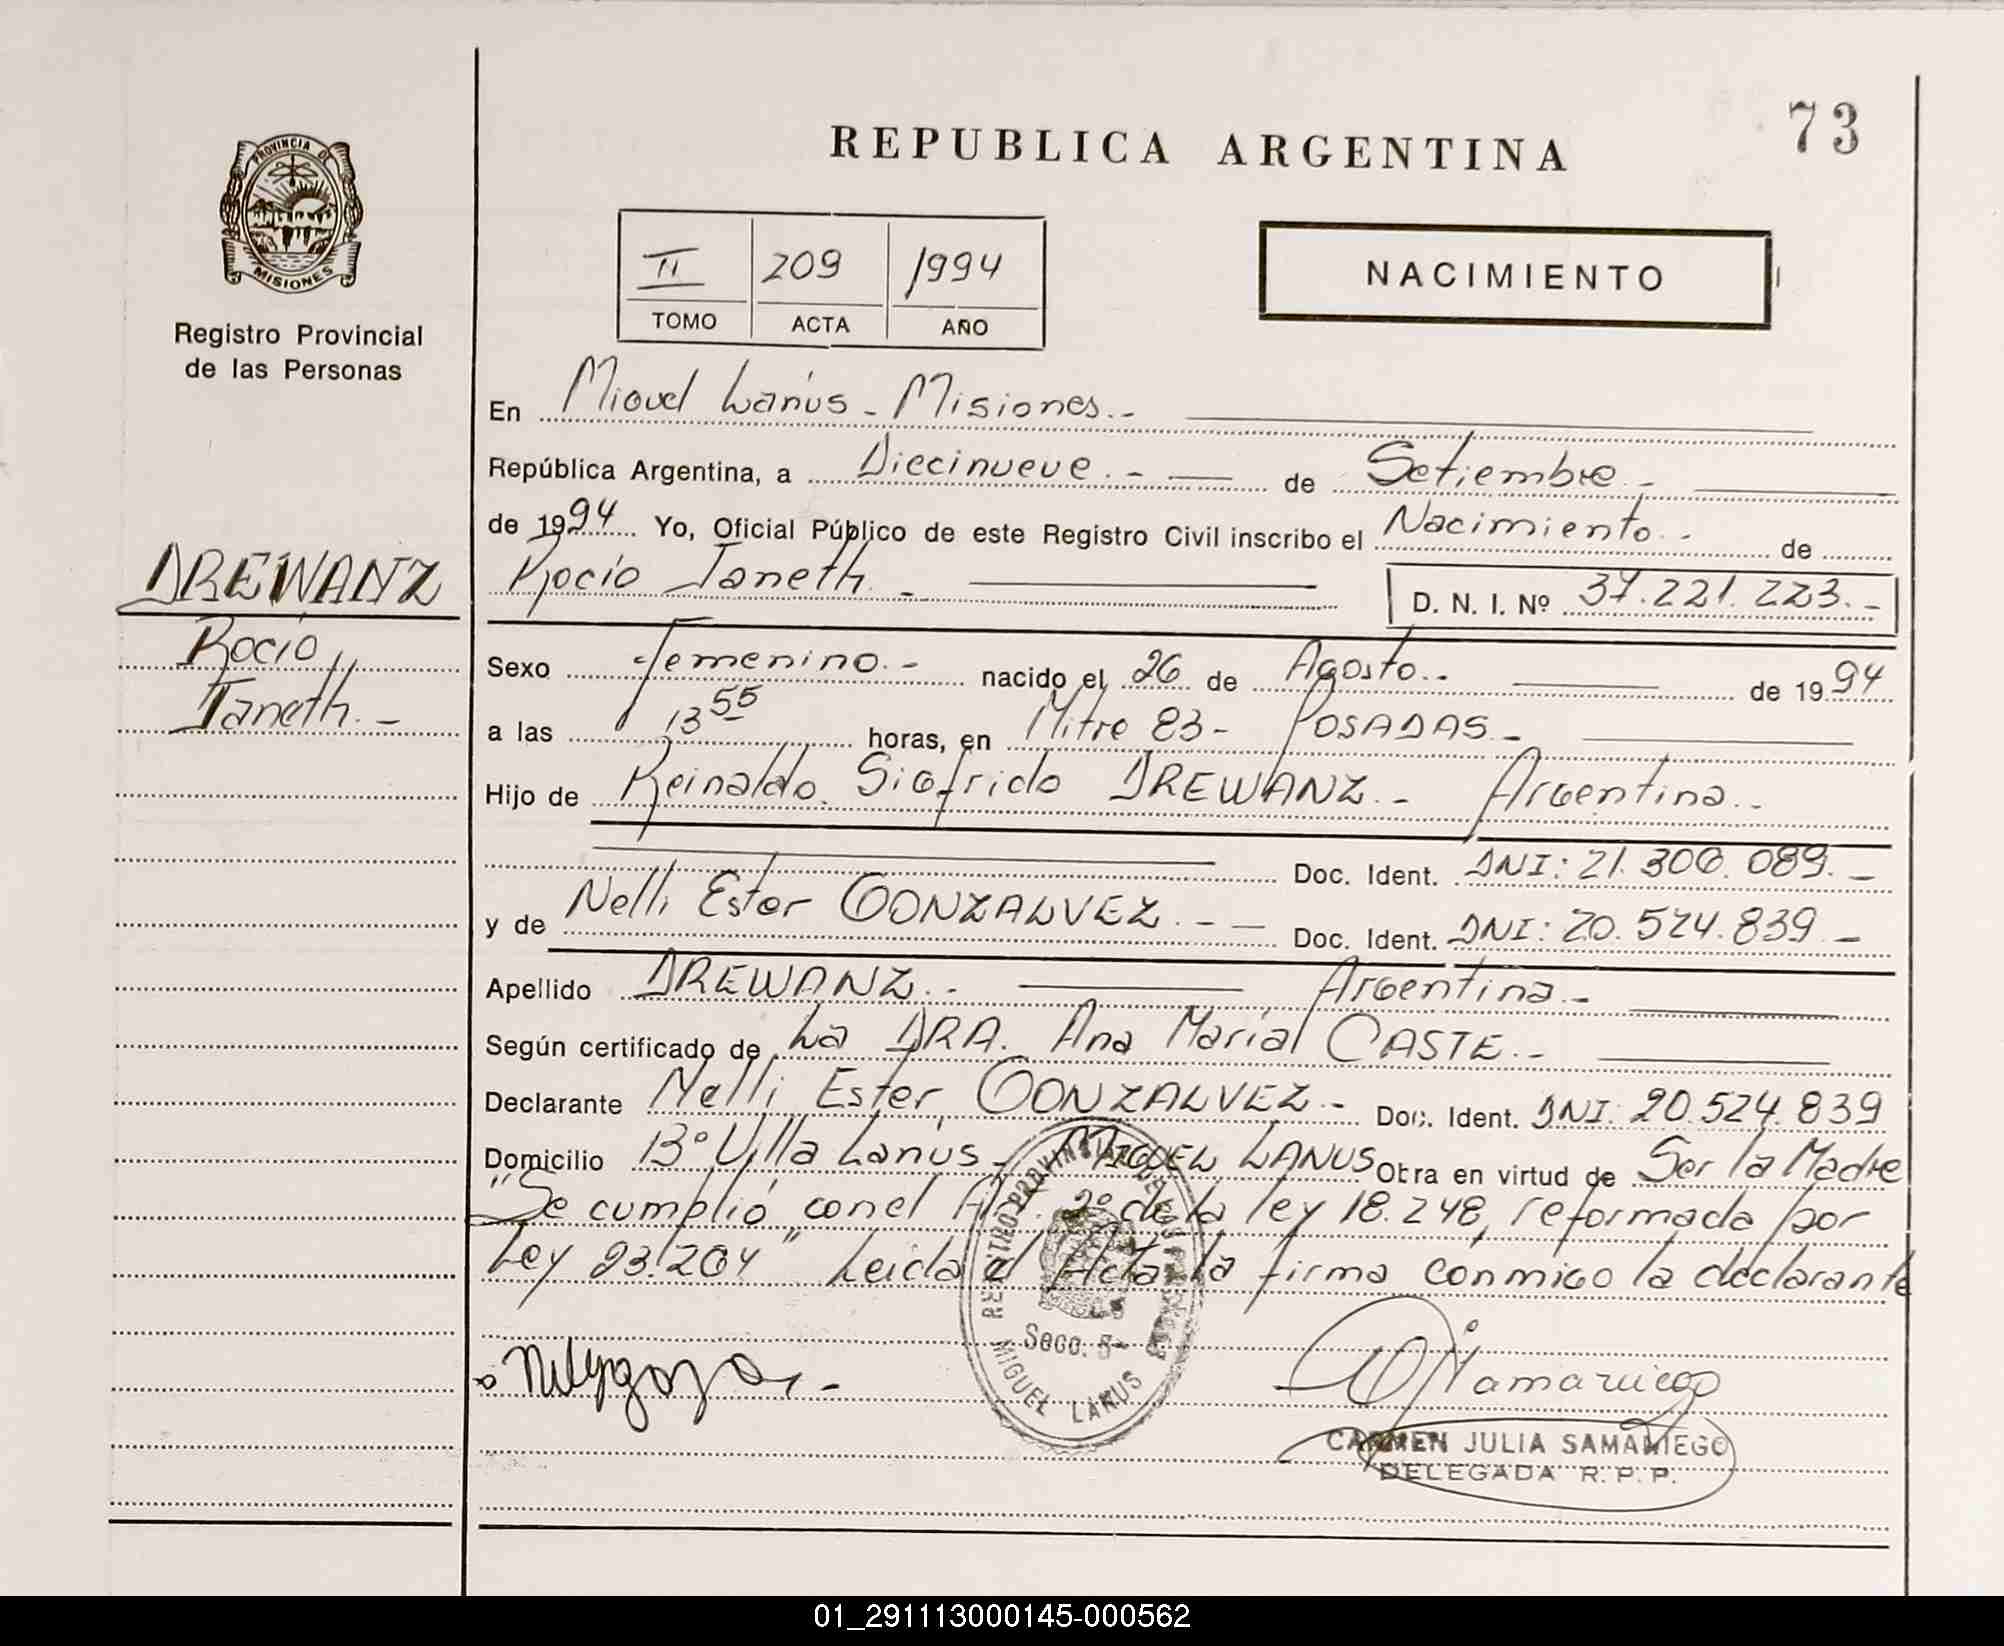 73
REPUBLICA ARGENTINA
PROVINCIA DE
MISIONES
Registro Provincial
de las Personas
II 209 1994
TOMO ACTA AÑO
NACIMIENTO
En Miguel Lanús - Misiones.-
República Argentina, a Diecinueve.- de Setiembre.-
de 1994 Yo, Oficial Público de este Registro Civil inscribo el Nacimiento.- de
DREWANZ
Rocío Janeth.- D. N. I. Nº 37.221.223.-
Rocío
Janeth.-
Sexo Femenino.- nacido el 26 de Agosto.- de 1994
a las 13 55 horas, en Mitre 83 - POSADAS.-
Hijo de Reinaldo Sigfrido DREWANZ.- Argentina.-
Doc. Ident. DNI: 21.300.089.-
y de Nelli Ester GONZALVEZ.- Doc. Ident. DNI: 20.524.839.-
Apellido DREWANZ.- Argentina.-
Según certificado de La DRA. Ana María CASTE.-
Declarante Nelli Ester GONZALVEZ.- Doc. Ident. DNI: 20.524.839
Domicilio Bº Villa Lanús - MIGUEL LANUS Obra en virtud de Ser la Madre
"Se cumplió con el Art. 2º de la ley 18.248, reformada por
Ley 23.264" Leida el Acta la firma conmigo la declarante
Secc. 5ª
MIGUEL LANUS
CARMEN JULIA SAMANIEGO
DELEGADA R. P. P.
01_291113000145-000562